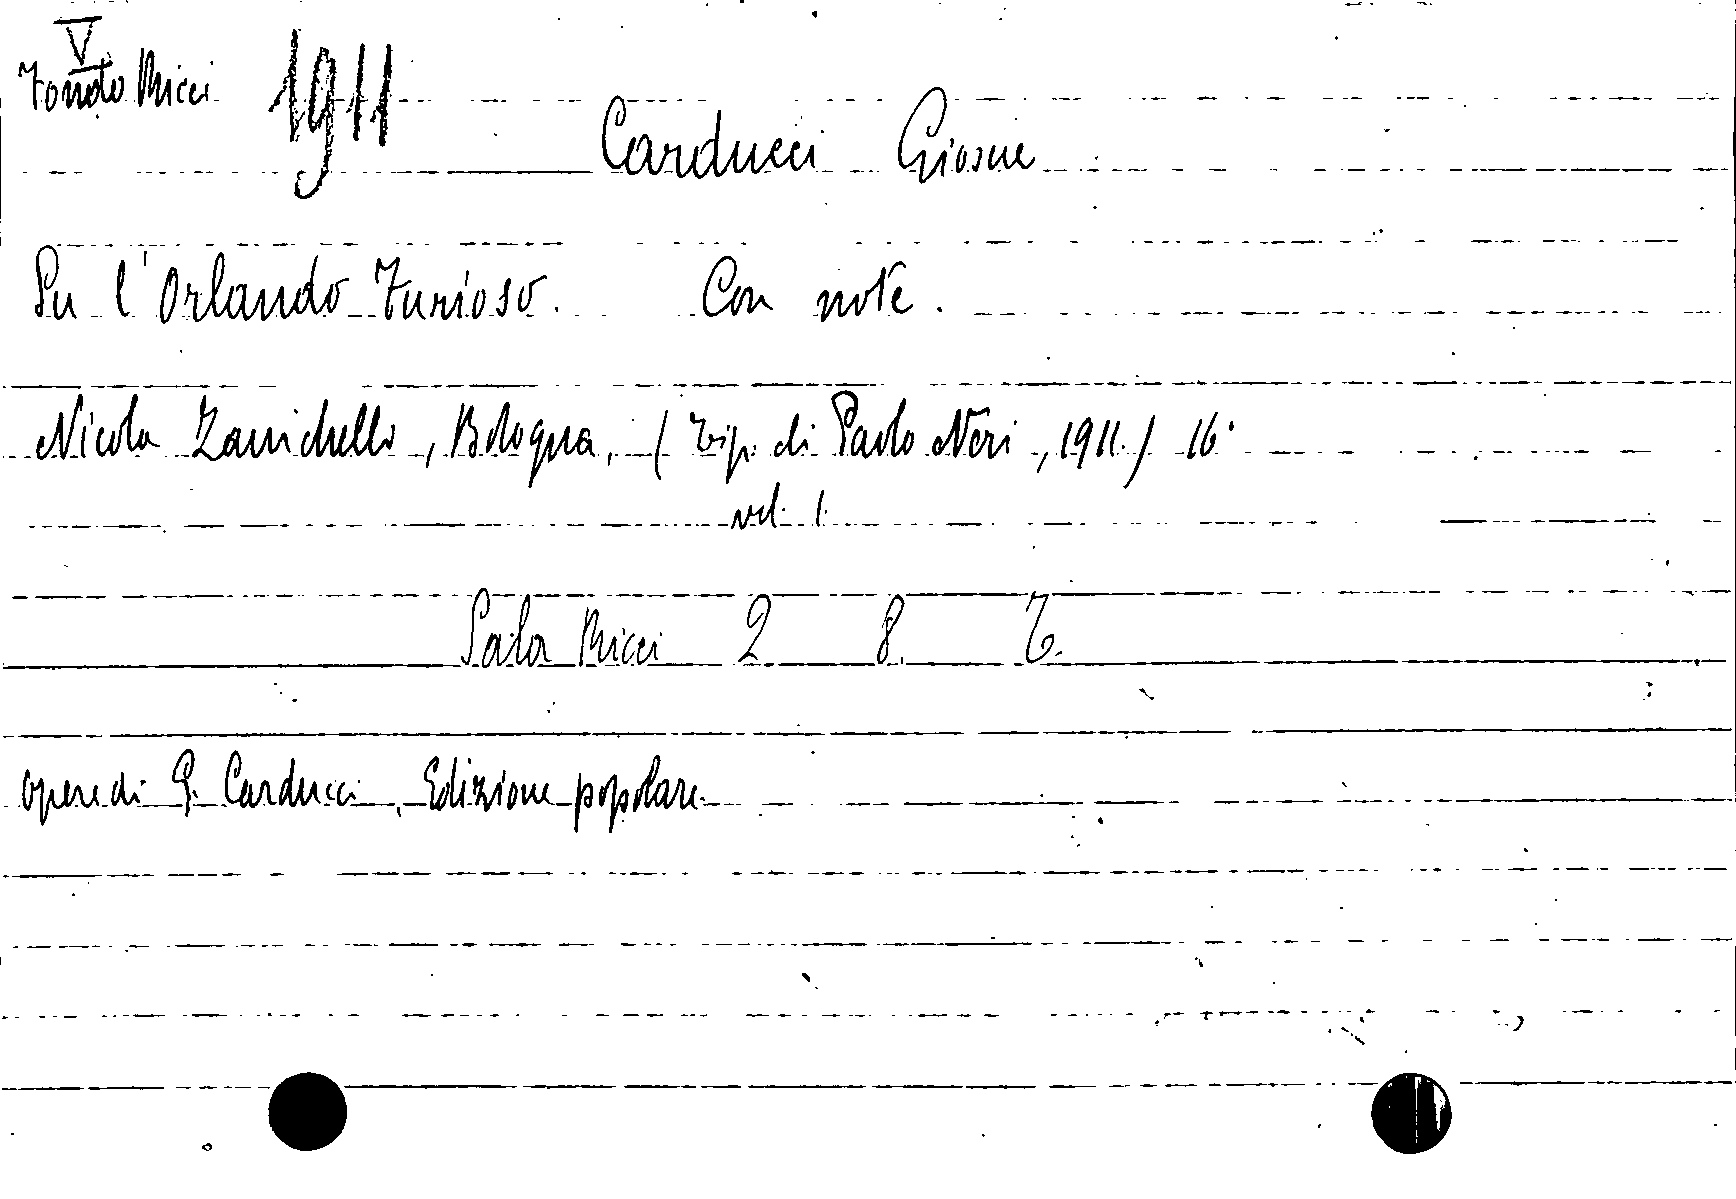 V
Fondo Ricci 1911
Carducci Giosue
Su l'Orlando Furioso. Con note.
Nicola Zanichelli, Bologna, (tip. di Paolo Neri, 1911.) 16°
vol. 1.
Sala Ricci 2 8.
Opere di G. Carducci, Edizione popolare.